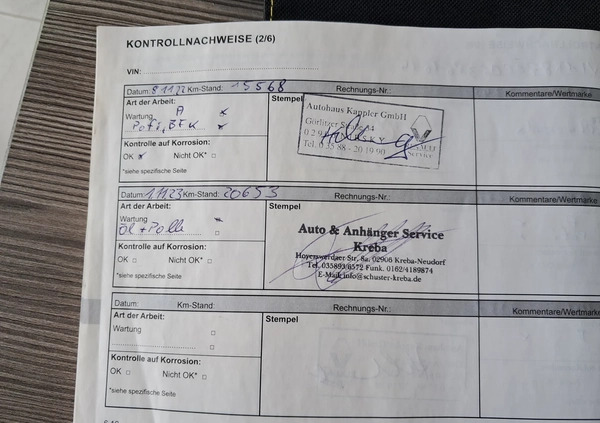 KONTROLLNACHWEISE (2/6)
VIN:
Datum: 8.11.22 Km-Stand: 15568 Rechnungs-Nr.: Kommentare/Wertmarke
Art der Arbeit: Stempel
Wartung A x
Pofi, BFK x
Kontrolle auf Korrosion:
OK x Nicht OK* □
*siehe spezifische Seite
Autohaus Kappler GmbH
Görlitzer Straße
Tel. 03588 - 20 19 90
Service
Datum: 1.11.23 Km-Stand: 20653 Rechnungs-Nr.: Kommentare/Wertmarke
Art der Arbeit: Stempel
Wartung x
Öl + Polle □
Kontrolle auf Korrosion:
OK □ Nicht OK* □
*siehe spezifische Seite
Auto & Anhänger Service
Kreba
Hoyerswerdaer Str. 8a, 02906 Kreba-Neudorf
Tel. 035893/6572 Funk. 0162/4189874
E-Mail: info@schuster-kreba.de
Datum: Km-Stand: Rechnungs-Nr.: Kommentare/Wertmarke
Art der Arbeit: Stempel
Wartung □
□
Kontrolle auf Korrosion:
OK □ Nicht OK* □
*siehe spezifische Seite